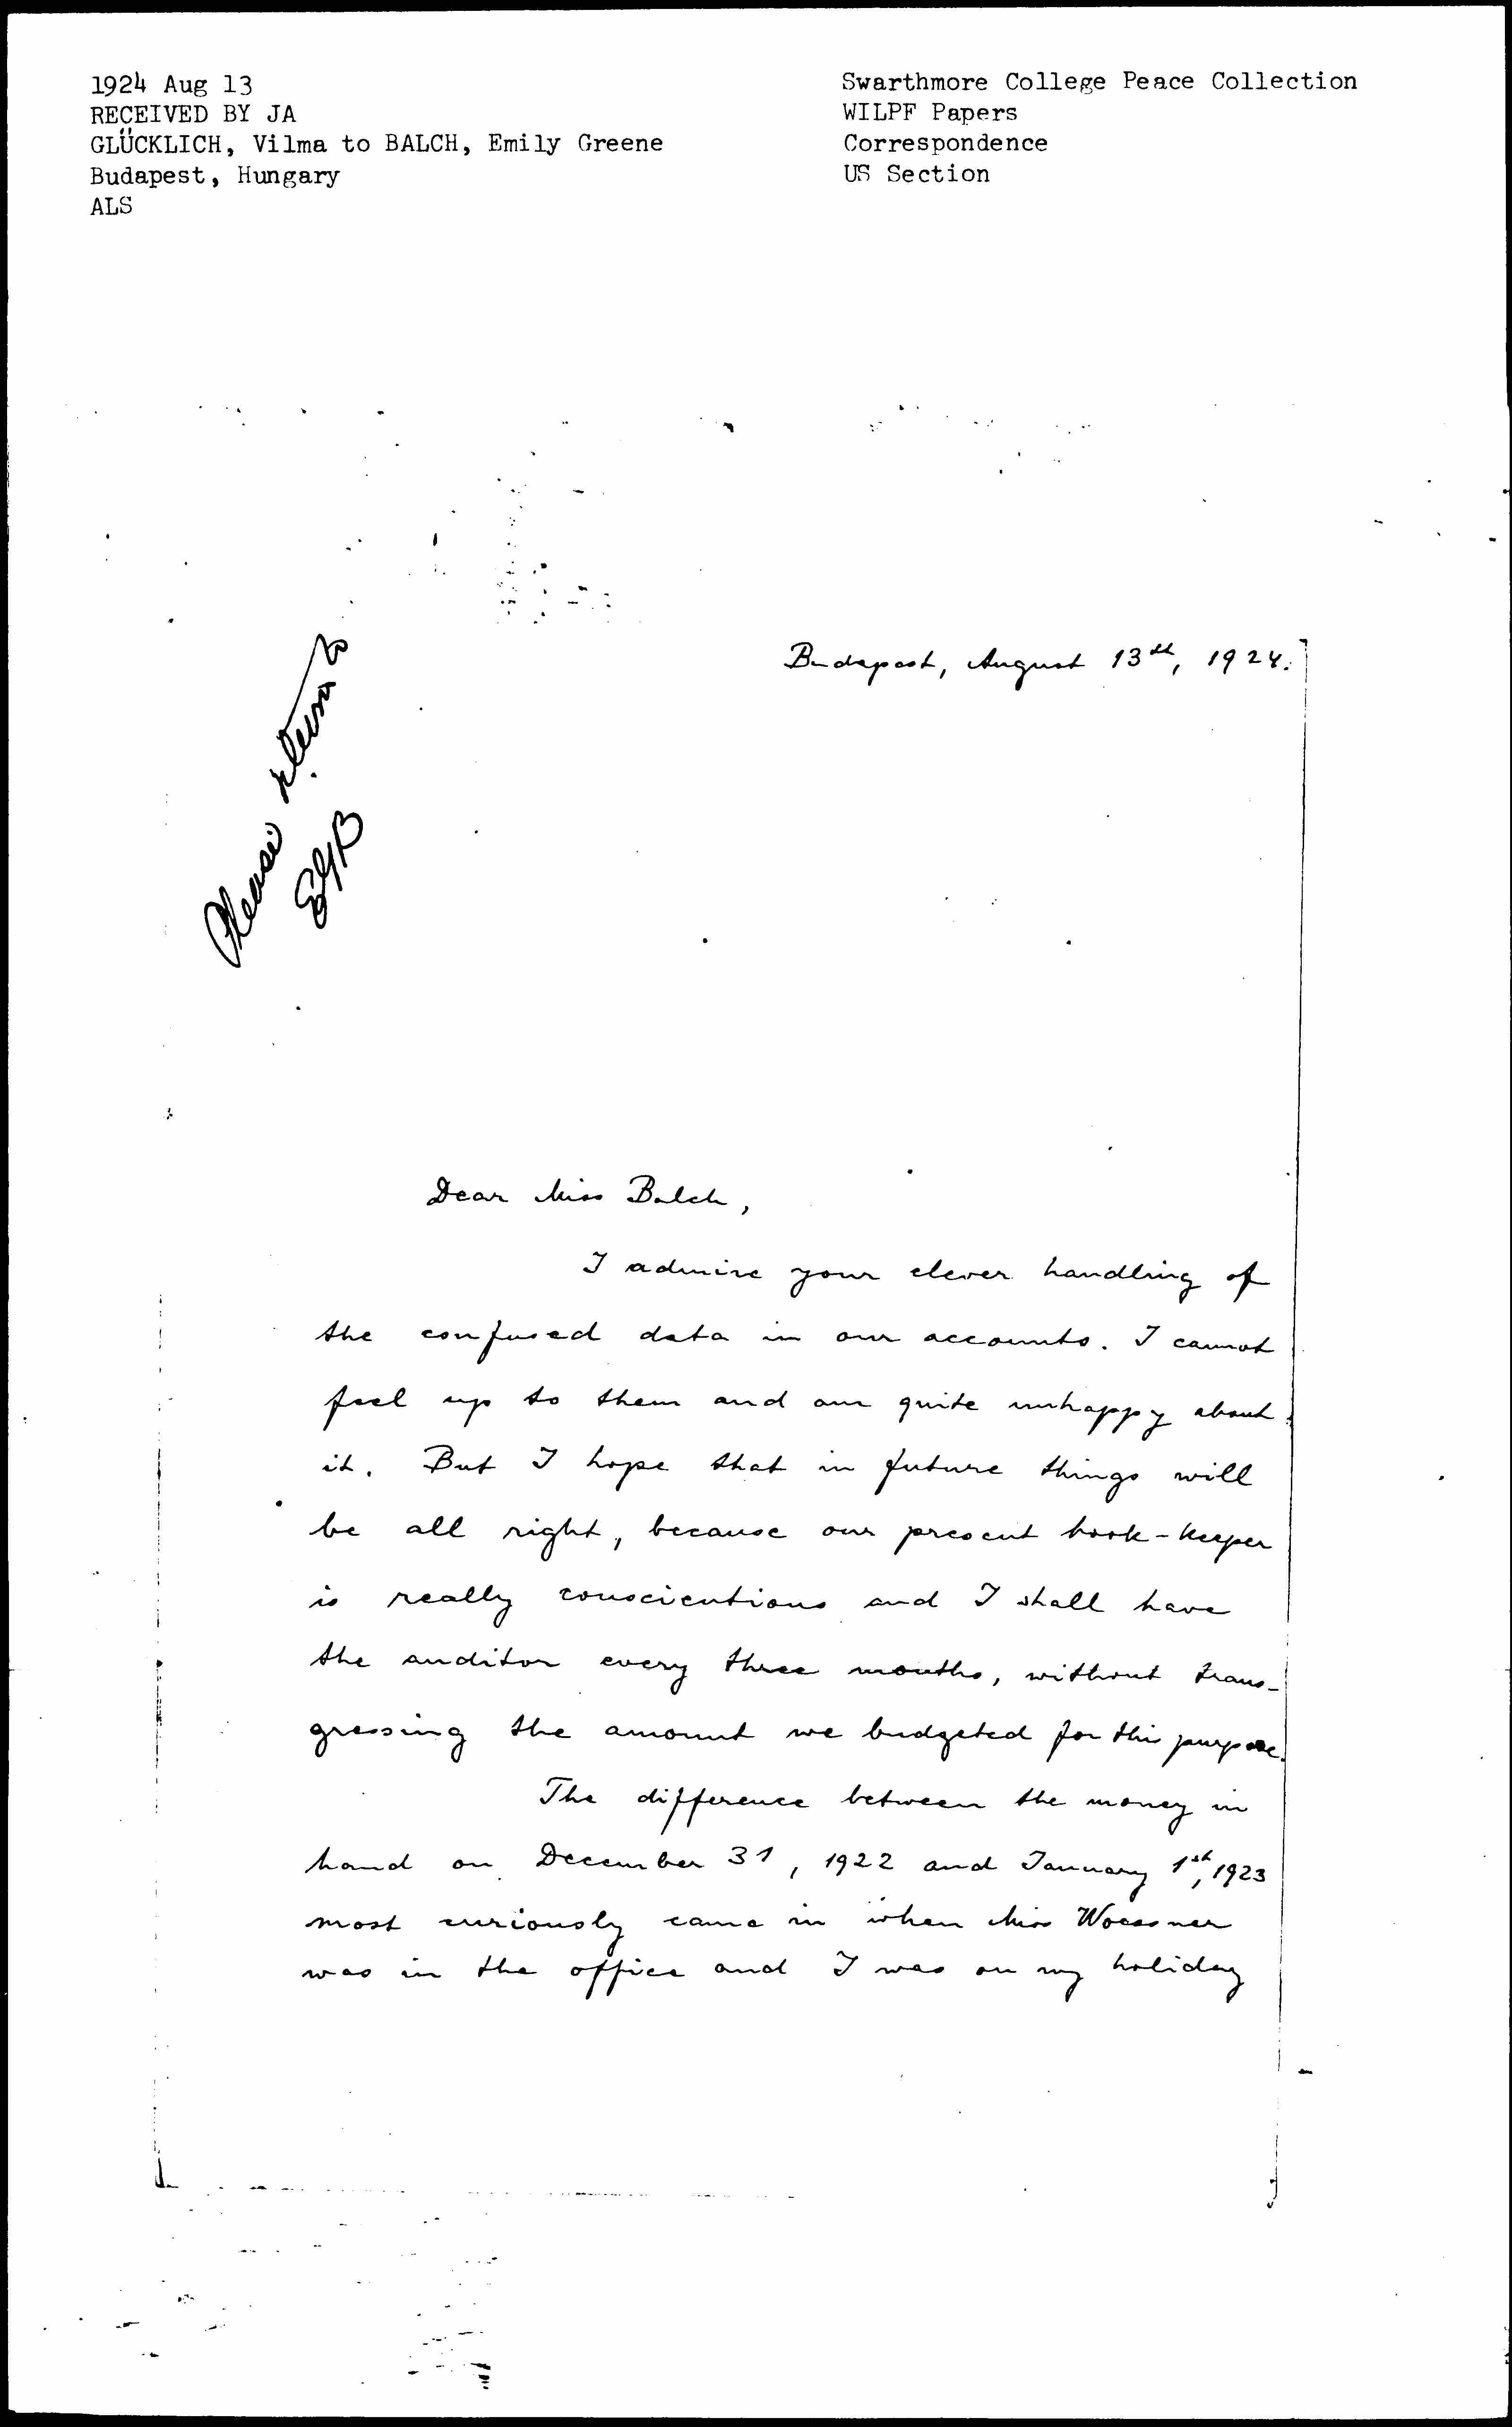 1924 Aug 13
RECEIVED BY JA
GLÜCKLICH, Vilma to BALCH, Emily Greene
Budapest, Hungary
ALS
Swarthmore College Peace Collection
WILPF Papers
Correspondence
US Section
Please return to
EGB
Budapest, August 13th, 1924.
Dear Miss Balch,
I admire your clever handling of
the confused data in our accounts. I cannot
feel up to them and am quite unhappy about
it. But I hope that in future things will
be all right, because our present book-keeper
is really conscientious and I shall have
the auditor every three months, without trans-
gressing the amount we budgeted for this purpose.
The difference between the money in
hand on December 31, 1922 and January 1st, 1923
most curiously came in when Miss Woessner
was in the office and I was on my holiday